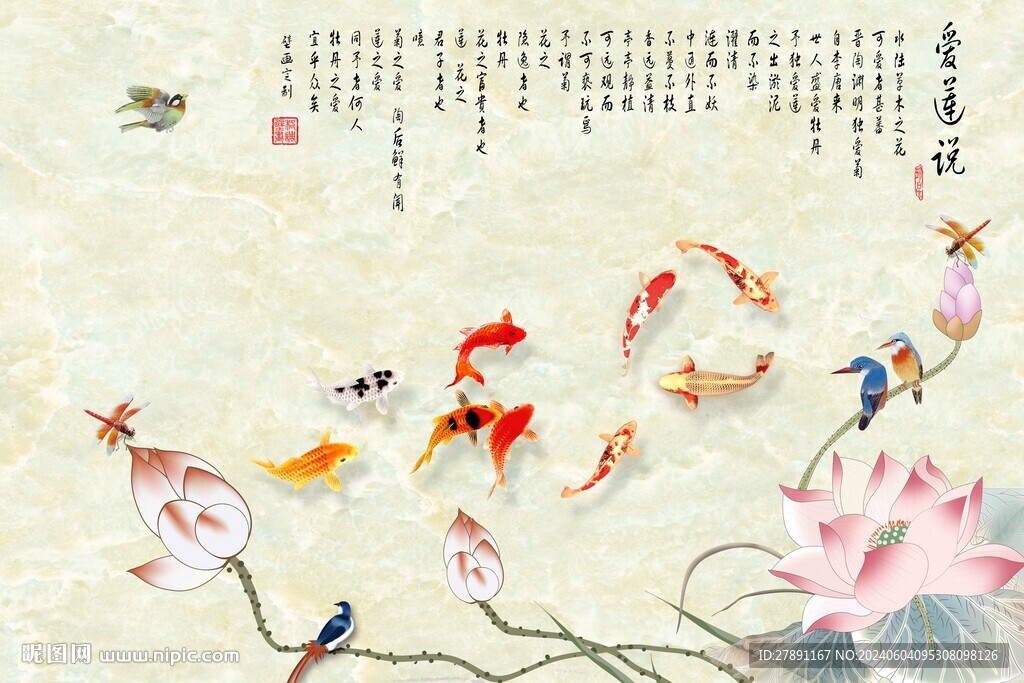 爱莲说
水陆草木之花
可爱者甚蕃
晋陶渊明独爱菊
自李唐来
世人盛爱牡丹
予独爱莲
之出淤泥
而不染
濯清
涟而不妖
中通外直
不蔓不枝
香远益清
亭亭静植
可远观而
不可亵玩焉
予谓菊
花之
隐逸者也
牡丹
花之富贵者也
莲 花之
君子者也
噫
菊之爱 陶后鲜有闻
莲之爱
同予者何人
牡丹之爱
宜乎众矣
壁画定制
昵图网 www.nipic.com
ID:27891167 NO:20240604095308098126